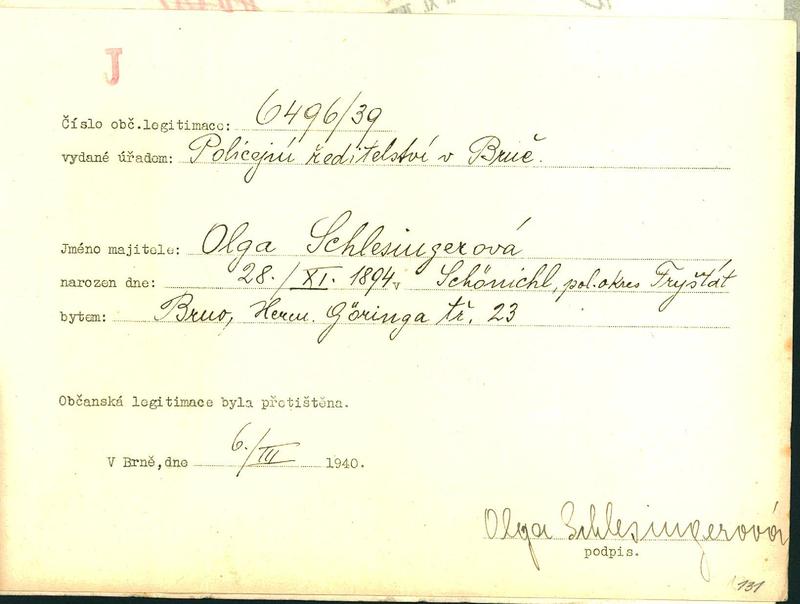 J
Číslo obč.legitimace: 6496/39
vydané úřadem: Policejní ředitelství v Brně.
Jméno majitele: Olga Schlesingerová
narozen dne: 28./XI. 1894 v Schönichl, pol. okres Fryštát
bytem: Brno, Herm. Göringa tř. 23
Občanská legitimace byla přetištěna.
V Brně,dne 6./III 1940.
Olga Schlesingerová
podpis.
131